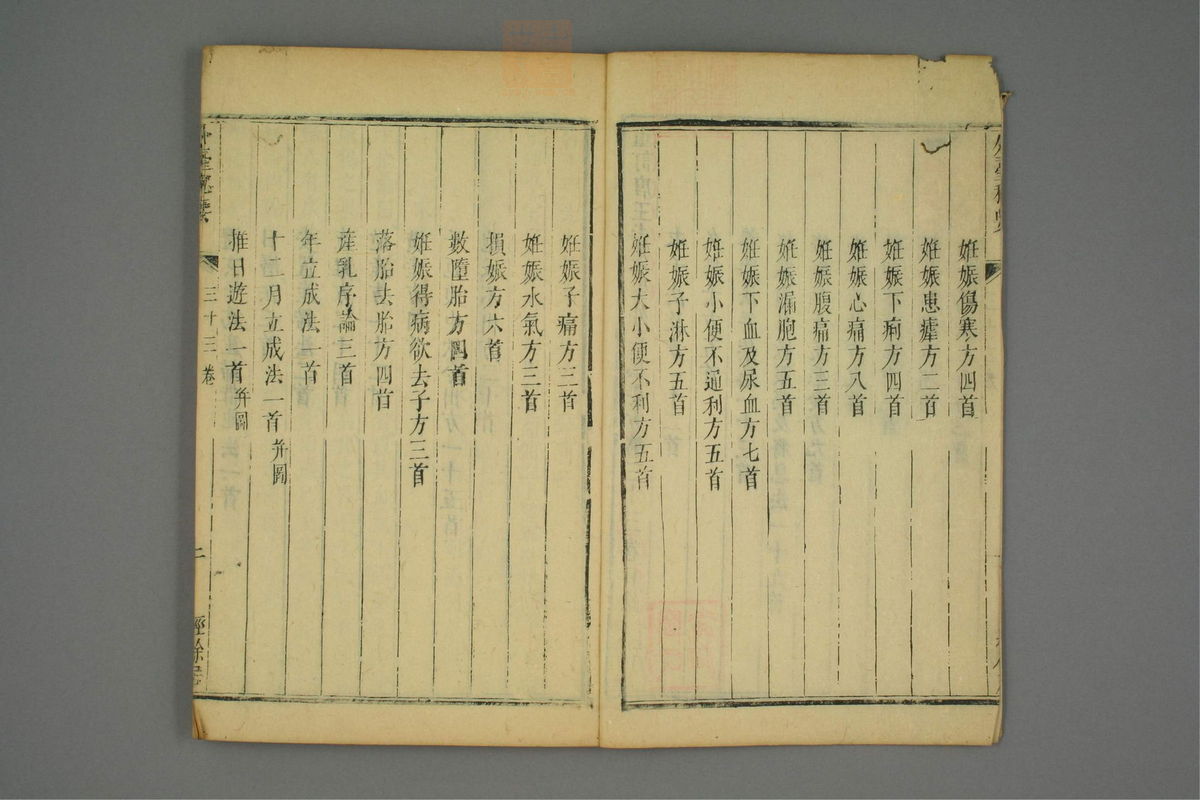 妊娠傷寒方四首
妊娠患瘧方二首
妊娠下痢方四首
妊娠心痛方八首
妊娠腹痛方三首
妊娠漏胞方五首
妊娠下血及尿血方七首
妊娠小便不通利方五首
妊娠子淋方五首
妊娠大小便不利方五首
妊娠子癇方三首
妊娠水氣方三首
損娠方六首
數墮胎方四首
妊娠得病欲去子方三首
落胎去胎方四首
產乳序論三首
年立成法一首
十二月立成法一首并圖
推日遊法一首并圖
外臺秘要
三十三卷
二
經餘居